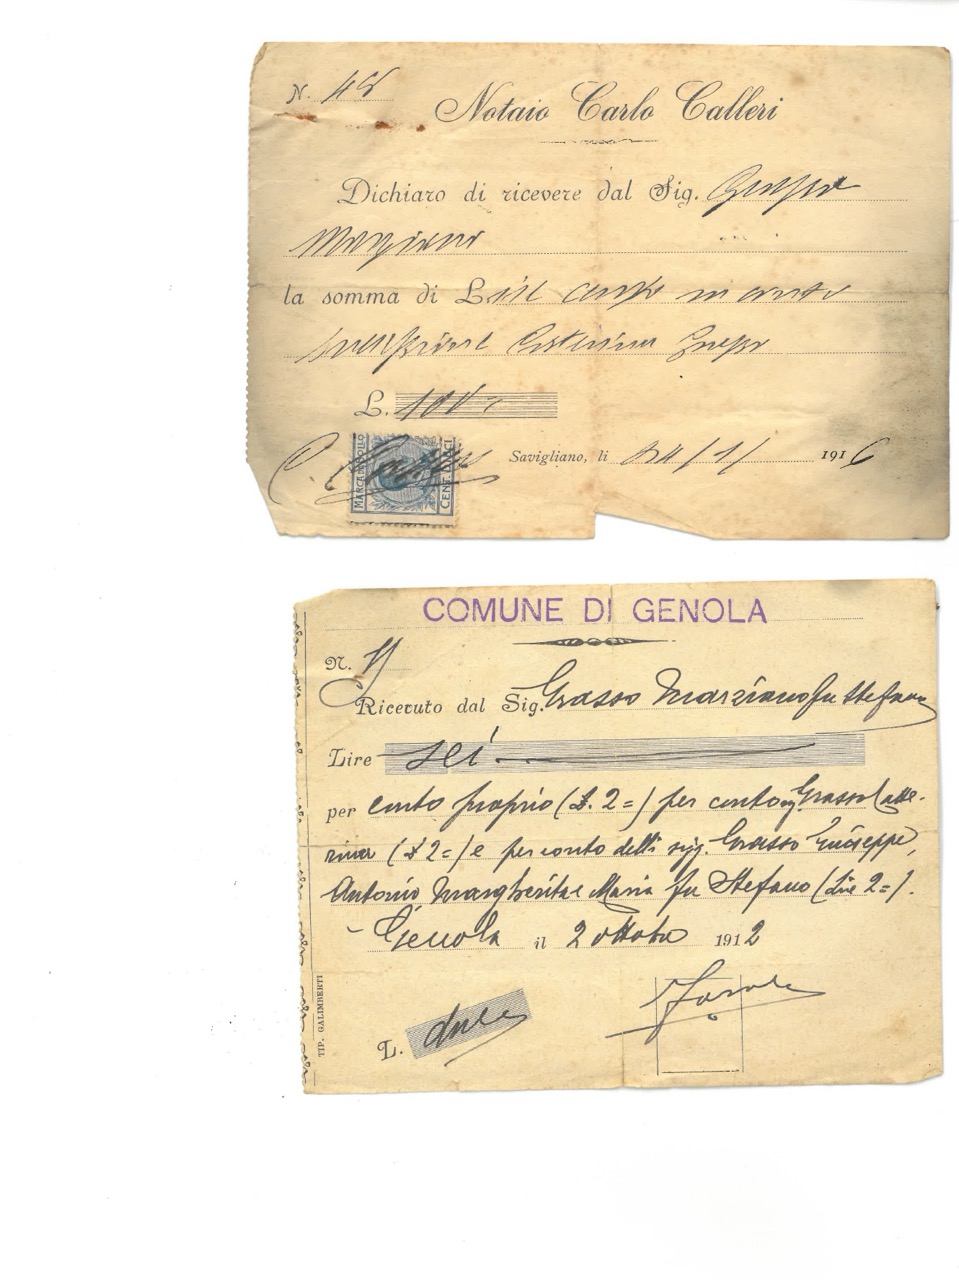 N. 48
Notaio Carlo Calleri
Dichiaro di ricevere dal Sig. Grasso
Marziano
la somma di Lire cento in conto
successione Catterina Grasso
L. 100
MARCA DA BOLLO
CENT. DIECI
Savigliano, li 24/1/ 1916
COMUNE DI GENOLA
N.
Ricevuto dal Sig. Grasso Marziano fu Stefano
Lire sei
per conto proprio (L. 2=) per conto Grasso Catte-
rina (L 2=) e per conto delli sig. Grasso Giuseppe,
Antonio Margherita e Maria fu Stefano (Lire 2=).
Genola il 2 ottobre 1912
L.
TIP. GALIMBERTI